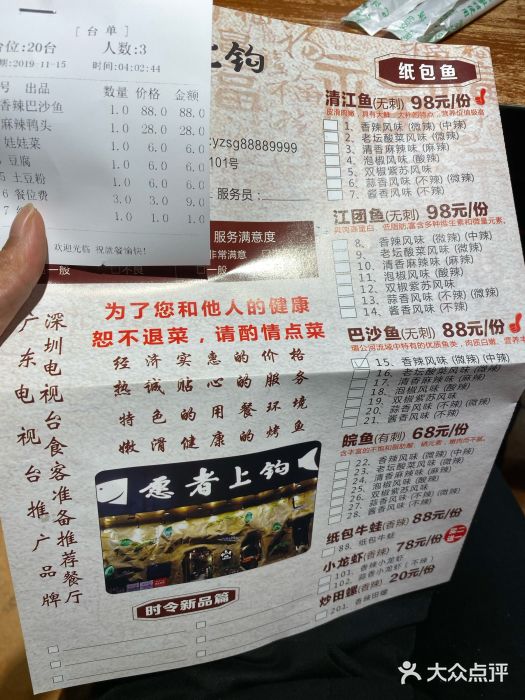 [台单]
台位:20台 人数:3
2019-11-15 时间:04:02:44
出品 数量 价格 金额
香辣巴沙鱼 1.0 88.0 88.0
麻辣鸭头 1.0 28.0 28.0
娃娃菜 1.0 6.0 6.0
豆腐 1.0 6.0 6.0
5 土豆粉 1.0 6.0 6.0
6 餐位费 3.0 3.0 9.0
7 1.0 1.0
欢迎光临 祝就餐愉快!
上钩
yzsg88889999
101号
服务员:
服务满意度
一般
为了您和他人的健康
恕不退菜,请酌情点菜
经济实惠的价格
热诚贴心的服务
特色的用餐环境
嫩滑健康的烤鱼
深圳电视台食客准备推荐餐厅
广东电视台推广品牌
愿者上钩
时令新品篇
纸包鱼
清江鱼(无刺) 98元/份
1. 香辣风味 (微辣) (中辣)
2. 老坛酸菜风味 (微辣)
3. 清香麻辣味 (麻辣)
4. 泡椒风味 (酸辣)
5. 双椒紫苏风味
6. 蒜香风味 (不辣) (微辣)
7. 酱香风味 (不辣)
江团鱼(无刺) 98元/份
8. 香辣风味 (微辣) (中辣)
9. 老坛酸菜风味 (微辣)
10. 清香麻辣味 (麻辣)
11. 泡椒风味 (酸辣)
12. 双椒紫苏风味
13. 蒜香风味 (不辣) (微辣)
14. 酱香风味 (不辣)
巴沙鱼(无刺) 88元/份
湄公河流域中特有的优质鱼类,肉质白嫩、营养丰
15. 香辣风味 (微辣) (中辣)
16. 老坛酸菜风味 (微辣)
17. 清香麻辣味 (麻辣)
18. 泡椒风味 (酸辣)
19. 双椒紫苏风味
20. 蒜香风味 (不辣) (微辣)
21. 酱香风味 (不辣)
皖鱼(有刺) 68元/份
22. 香辣风味 (微辣) (中辣)
23. 老坛酸菜风味 (微辣)
24. 清香麻辣味 (麻辣)
25. 泡椒风味 (酸辣)
26. 双椒紫苏风味
27. 蒜香风味 (不辣) (微辣)
28. 酱香风味 (不辣)
纸包牛蛙(香辣) 88元/份
88. 纸包牛蛙
小龙虾(香辣) 78元/份
101. 香辣小龙虾
102. 蒜香小龙虾(不辣)
炒田螺(香辣) 20元/份
201. 香辣田螺
大众点评